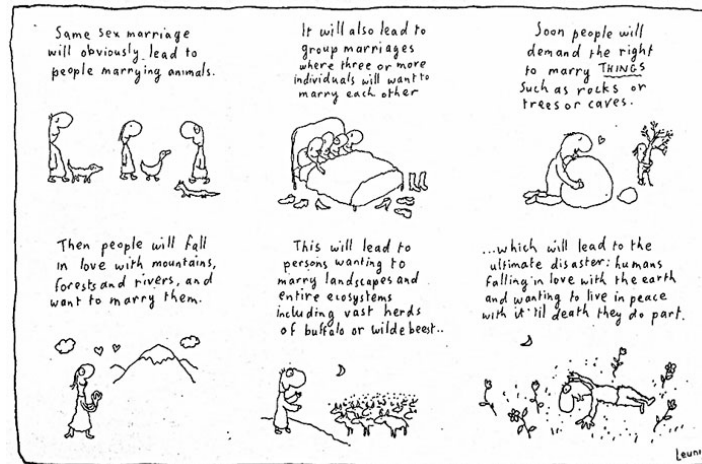 Same sex marriage
will obviously lead to
people marrying animals.
It will also lead to
group marriages
where three or more
individuals will want to
marry each other
Soon people will
demand the right
to marry THINGS
such as rocks or
trees or caves.
Then people will fall
in love with mountains,
forests and rivers, and
want to marry them.
This will lead to
persons wanting to
marry landscapes and
entire ecosystems
including vast herds
of buffalo or wildebeest..
...which will lead to the
ultimate disaster: humans
falling in love with the earth
and wanting to live in peace
with it 'til death they do part.
Leunig